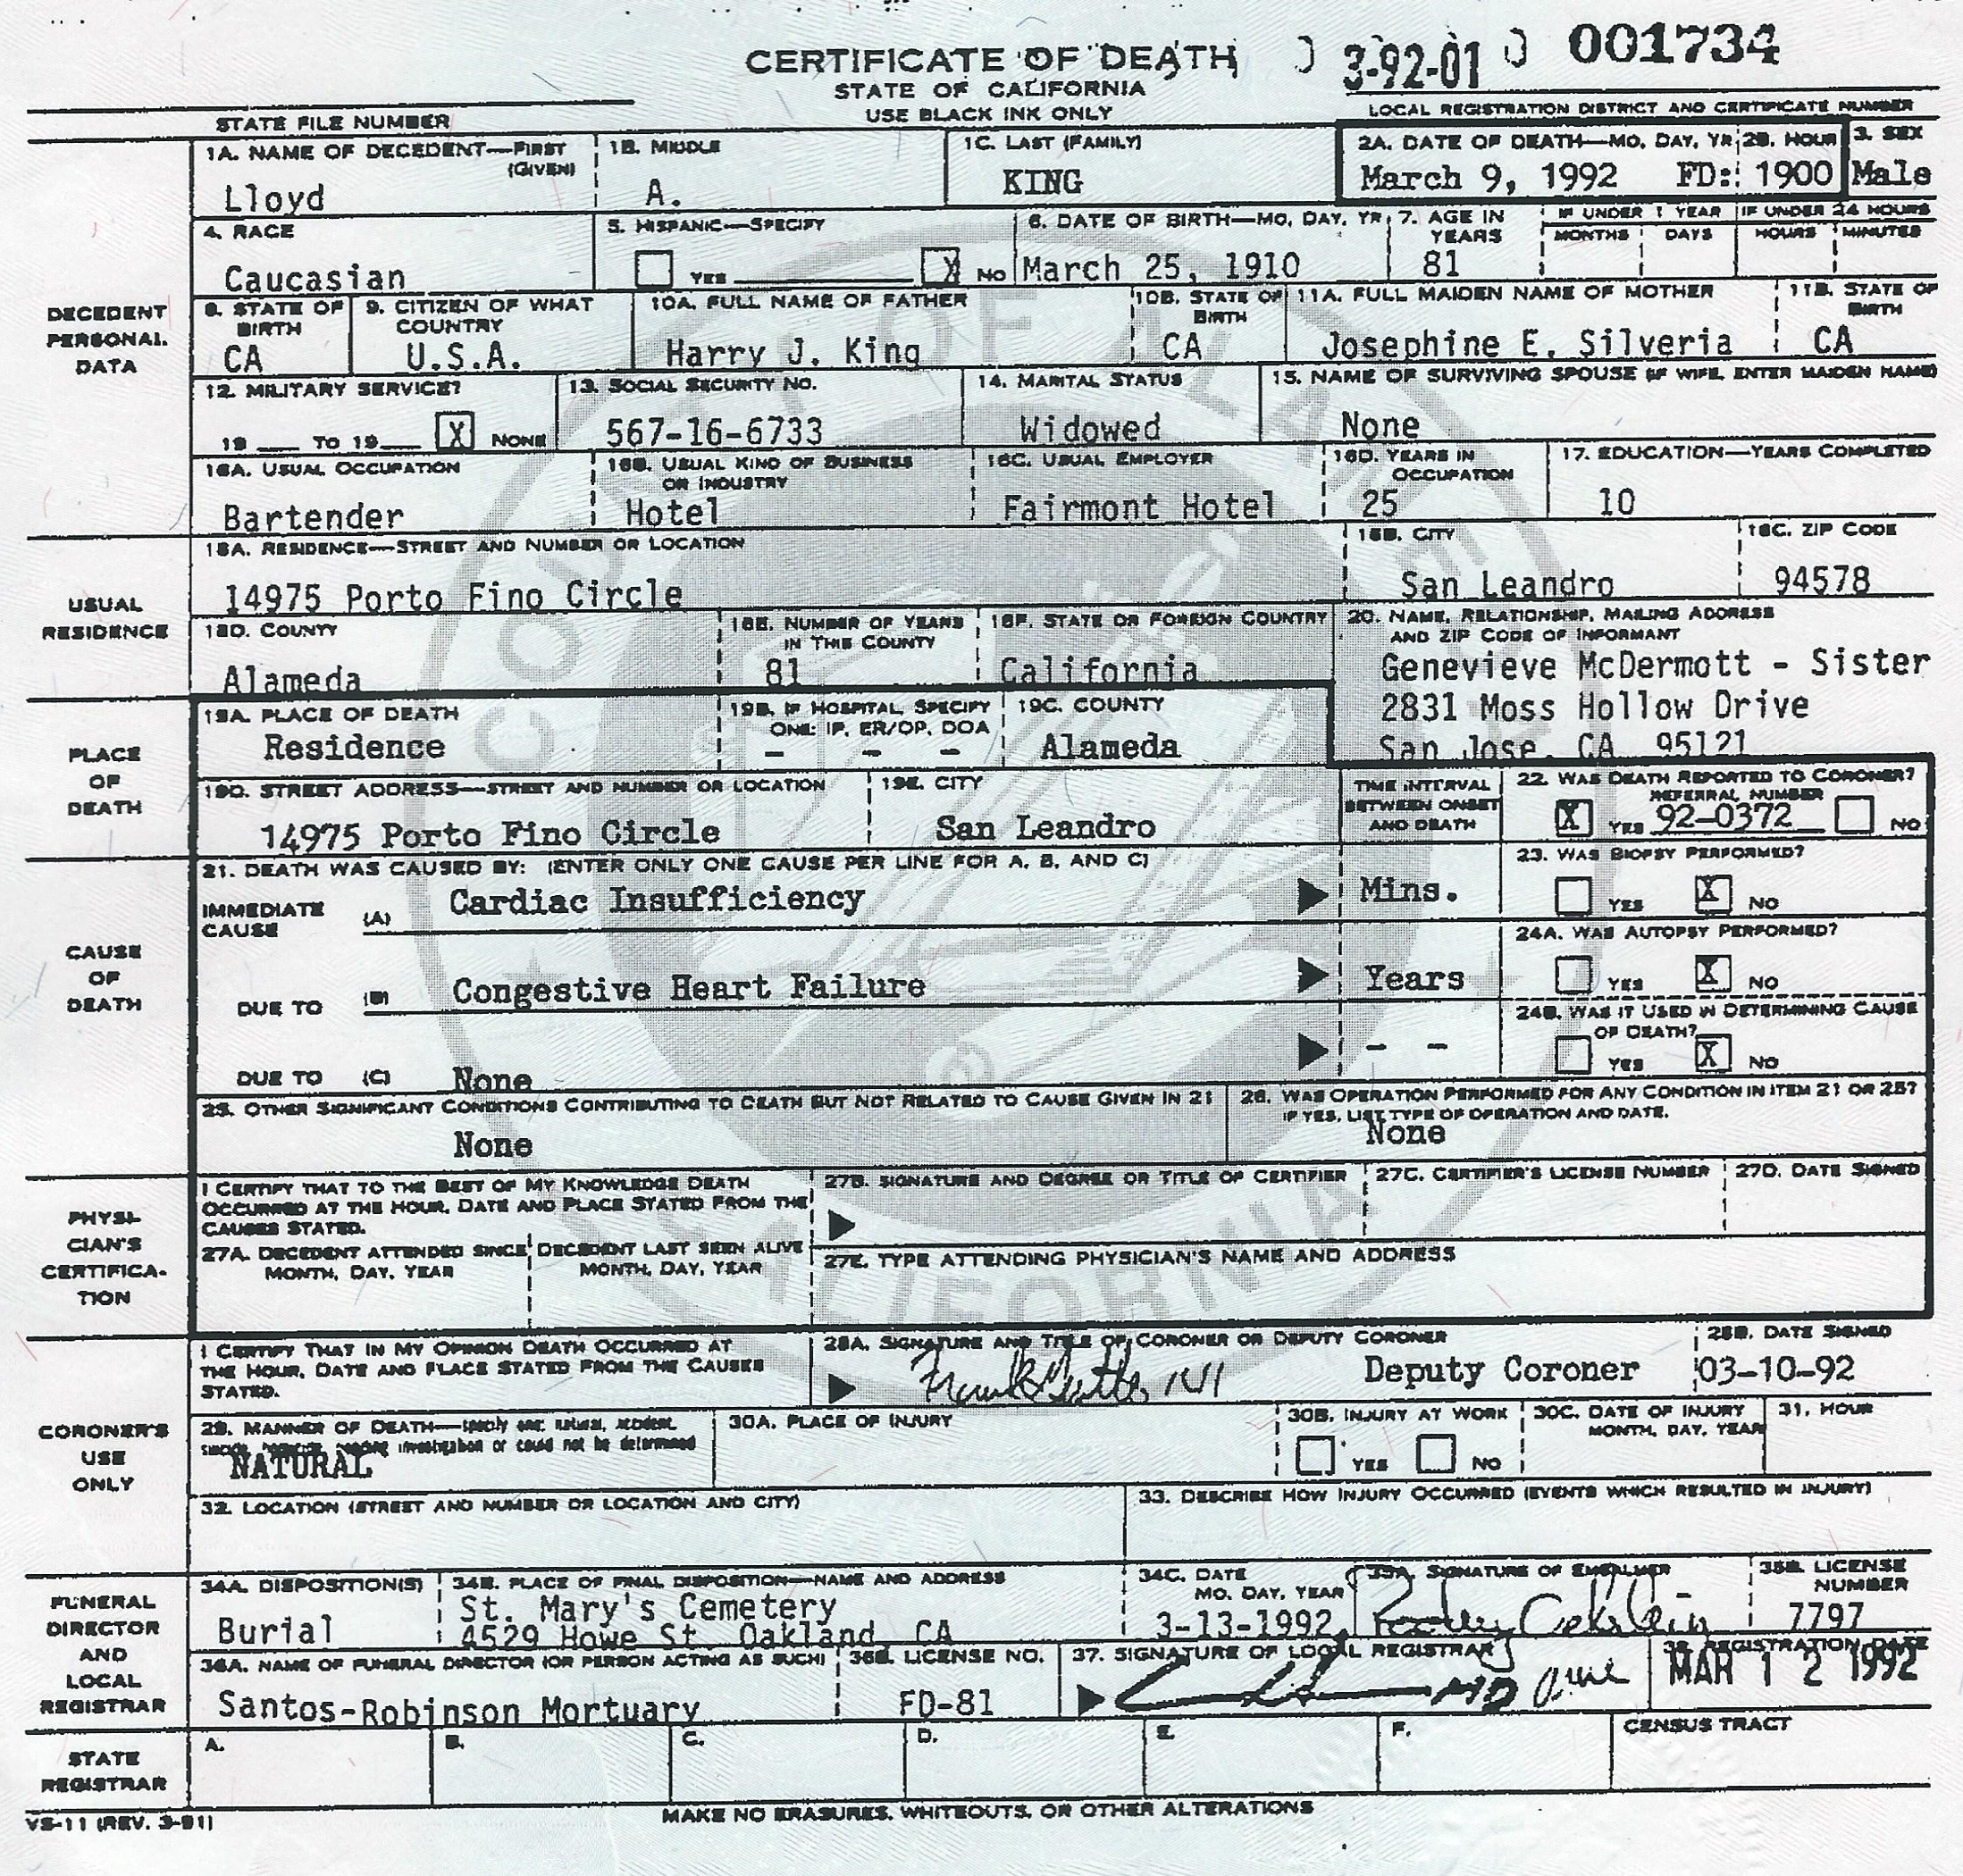 CERTIFICATE OF DEATH 3-92-01 001734
STATE OF CALIFORNIA
USE BLACK INK ONLY
STATE FILE NUMBER
LOCAL REGISTRATION DISTRICT AND CERTIFICATE NUMBER
DECEDENT PERSONAL DATA
1A. NAME OF DECEDENT—FIRST (GIVEN)
Lloyd
1B. MIDDLE
A.
1C. LAST (FAMILY)
KING
2A. DATE OF DEATH—MO, DAY, YR
March 9, 1992
2B. HOUR
FD: 1900
3. SEX
Male
4. RACE
Caucasian
5. HISPANIC—SPECIFY
YES X NO
6. DATE OF BIRTH—MO, DAY, YR
March 25, 1910
7. AGE IN YEARS
81
IF UNDER 1 YEAR
MONTHS DAYS
IF UNDER 24 HOURS
HOURS MINUTES
8. STATE OF BIRTH
CA
9. CITIZEN OF WHAT COUNTRY
U.S.A.
10A. FULL NAME OF FATHER
Harry J. King
10B. STATE OF BIRTH
CA
11A. FULL MAIDEN NAME OF MOTHER
Josephine E. Silveria
11B. STATE OF BIRTH
CA
12. MILITARY SERVICE?
19 __ TO 19 __ X NONE
13. SOCIAL SECURITY NO.
567-16-6733
14. MARITAL STATUS
Widowed
15. NAME OF SURVIVING SPOUSE (IF WIFE, ENTER MAIDEN NAME)
None
16A. USUAL OCCUPATION
Bartender
16B. USUAL KIND OF BUSINESS OR INDUSTRY
Hotel
16C. USUAL EMPLOYER
Fairmont Hotel
16D. YEARS IN OCCUPATION
25
17. EDUCATION—YEARS COMPLETED
10
USUAL RESIDENCE
18A. RESIDENCE—STREET AND NUMBER OR LOCATION
14975 Porto Fino Circle
18B. CITY
San Leandro
18C. ZIP CODE
94578
18D. COUNTY
Alameda
18E. NUMBER OF YEARS IN THIS COUNTY
81
18F. STATE OR FOREIGN COUNTRY
California
20. NAME, RELATIONSHIP, MAILING ADDRESS AND ZIP CODE OF INFORMANT
Genevieve McDermott - Sister
2831 Moss Hollow Drive
San Jose, CA 95121
PLACE OF DEATH
19A. PLACE OF DEATH
Residence
19B. IF HOSPITAL, SPECIFY ONE: IP, ER/OP, DOA
- - -
19C. COUNTY
Alameda
19D. STREET ADDRESS—STREET AND NUMBER OR LOCATION
14975 Porto Fino Circle
19E. CITY
San Leandro
TIME INTERVAL BETWEEN ONSET AND DEATH
22. WAS DEATH REPORTED TO CORONER?
REFERRAL NUMBER
X YES 92-0372 NO
CAUSE OF DEATH
21. DEATH WAS CAUSED BY: (ENTER ONLY ONE CAUSE PER LINE FOR A, B, AND C)
IMMEDIATE CAUSE (A) Cardiac Insufficiency Mins.
23. WAS BIOPSY PERFORMED?
YES X NO
DUE TO (B) Congestive Heart Failure Years
24A. WAS AUTOPSY PERFORMED?
YES X NO
DUE TO (C) None - -
24B. WAS IT USED IN DETERMINING CAUSE OF DEATH?
YES X NO
25. OTHER SIGNIFICANT CONDITIONS CONTRIBUTING TO DEATH BUT NOT RELATED TO CAUSE GIVEN IN 21
None
26. WAS OPERATION PERFORMED FOR ANY CONDITION IN ITEM 21 OR 25?
IF YES, LIST TYPE OF OPERATION AND DATE.
None
PHYSI-CIAN'S CERTIFICA-TION
I CERTIFY THAT TO THE BEST OF MY KNOWLEDGE DEATH
OCCURRED AT THE HOUR, DATE AND PLACE STATED FROM THE
CAUSES STATED.
27A. DECEDENT ATTENDED SINCE MONTH, DAY, YEAR
DECEDENT LAST SEEN ALIVE MONTH, DAY, YEAR
27B. SIGNATURE AND DEGREE OR TITLE OF CERTIFIER
27C. CERTIFIER'S LICENSE NUMBER
27D. DATE SIGNED
27E. TYPE ATTENDING PHYSICIAN'S NAME AND ADDRESS
CORONER'S USE ONLY
I CERTIFY THAT IN MY OPINION DEATH OCCURRED AT
THE HOUR, DATE AND PLACE STATED FROM THE CAUSES
STATED.
28A. SIGNATURE AND TITLE OF CORONER OR DEPUTY CORONER
Deputy Coroner
28B. DATE SIGNED
03-10-92
29. MANNER OF DEATH—specify one: natural, accident,
suicide, homicide, pending investigation or could not be determined
NATURAL
30A. PLACE OF INJURY
30B. INJURY AT WORK
YES NO
30C. DATE OF INJURY MONTH, DAY, YEAR
31. HOUR
32. LOCATION (STREET AND NUMBER OR LOCATION AND CITY)
33. DESCRIBE HOW INJURY OCCURRED (EVENTS WHICH RESULTED IN INJURY)
FUNERAL DIRECTOR AND LOCAL REGISTRAR
34A. DISPOSITION(S)
Burial
34B. PLACE OF FINAL DISPOSITION—NAME AND ADDRESS
St. Mary's Cemetery
4529 Howe St. Oakland, CA
34C. DATE MO, DAY, YEAR
3-13-1992
35A. SIGNATURE OF EMBALMER
35B. LICENSE NUMBER
7797
36A. NAME OF FUNERAL DIRECTOR (OR PERSON ACTING AS SUCH)
Santos-Robinson Mortuary
36B. LICENSE NO.
FD-81
37. SIGNATURE OF LOCAL REGISTRAR
38. REGISTRATION DATE
MAR 12 1992
STATE REGISTRAR
A. B. C. D. E. F. CENSUS TRACT
VS-11 (REV. 3-91)
MAKE NO ERASURES, WHITEOUTS, OR OTHER ALTERATIONS
COUNTY OF ALAMEDA
CALIFORNIA